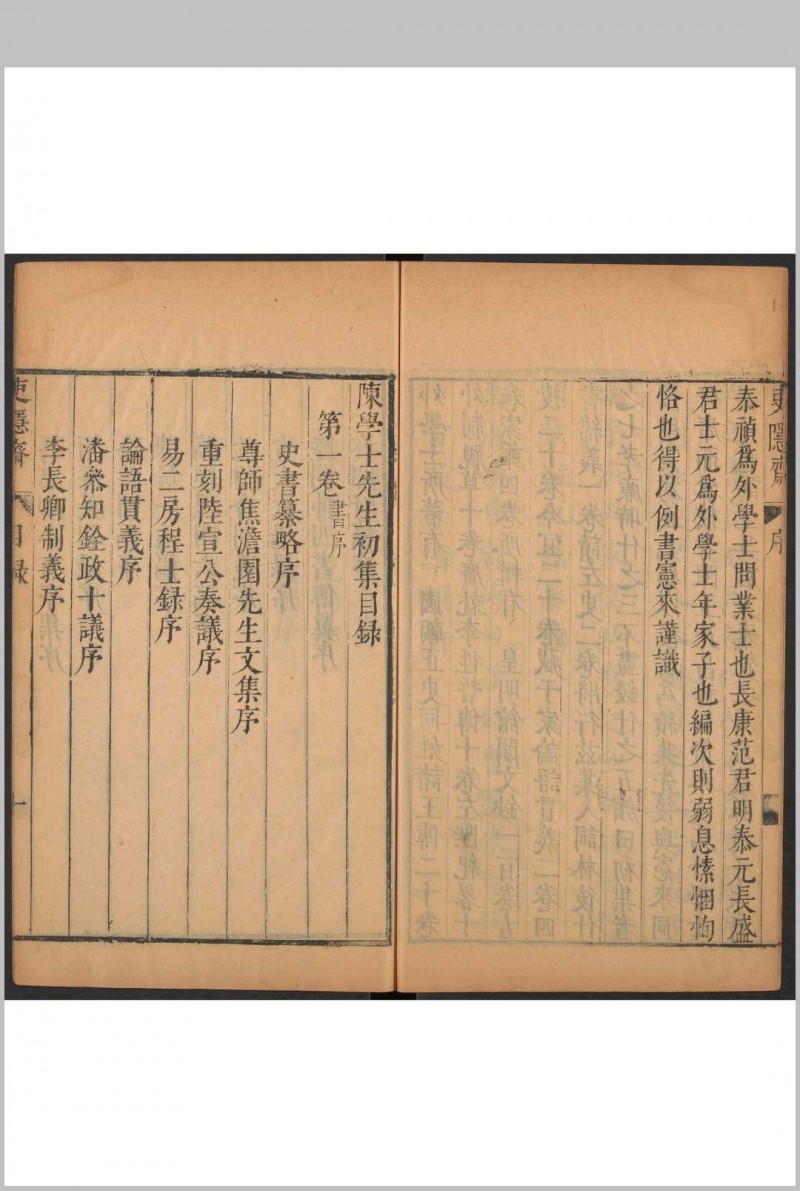 吏隱齋 序
泰禎爲外學士問業士也長康范君明泰元長盛
君士元爲外學士年家子也編次則弱息愫悃恂
恪也得以例書憲來謹識
陳學士先生初集目録
第一卷 書序
史書纂略序
尊師焦澹園先生文集序
重刻陸宣公奏議序
易二房程士録序
論語貫義序
潘叅知銓政十議序
李長卿制義序
吏隱齋 目録 一